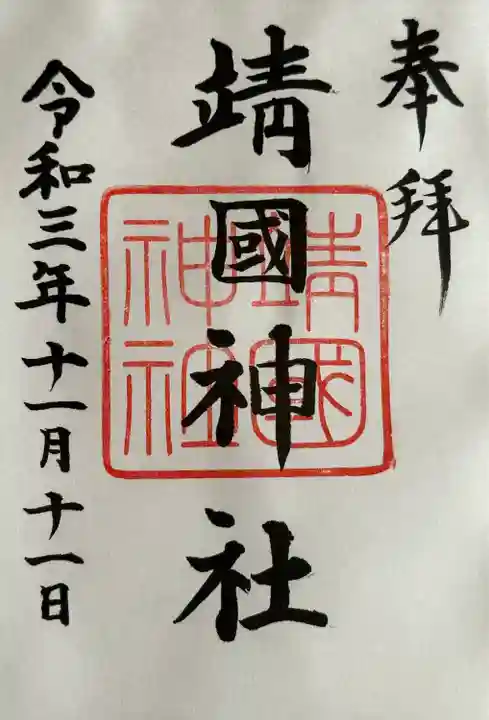 奉拝
靖國神社
靖國
神社
令和三年十一月十一日